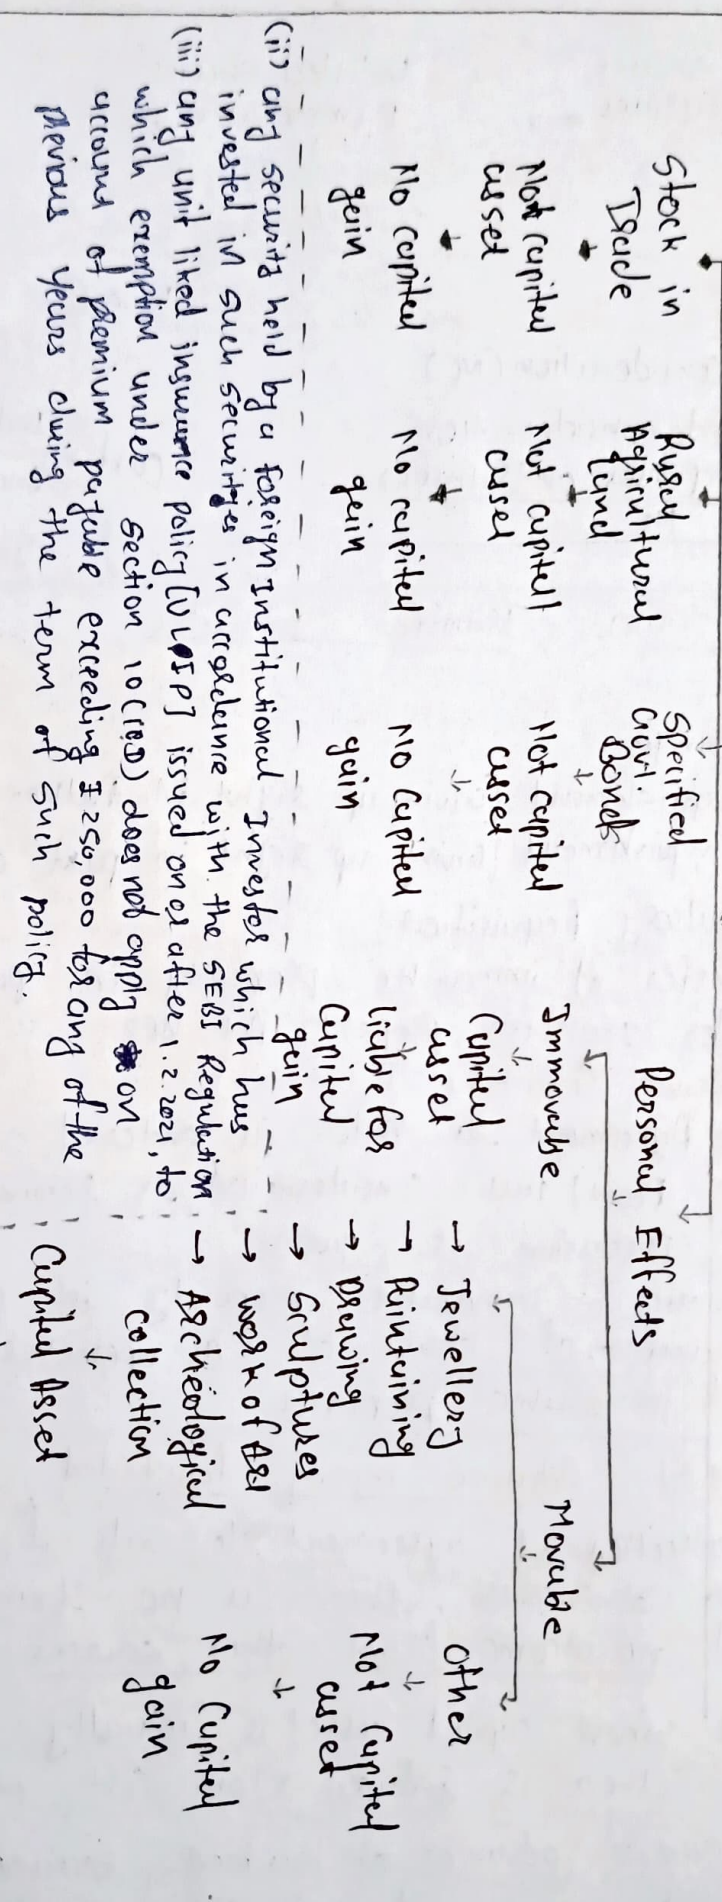 Stock in
Trade
Not capital
asset
No capital
gain
Rural
Agricultural
land
Not capitall
asset
No capital
gain
Specified
Govt.
Bonds
Not capital
asset
No Capital
gain
Personal Effects
Immovable
Capital
asset
liable for
Capital
gain
Movable
→ Jewellery
→ Paintaining
→ Drawing
→ Sculptures
→ work of Art
→ Archeological
collection
Capital Asset
other
Not Capital
asset
No Capital
gain
(ii) any security held by a foreign Institutional Investor which has
invested in such securityes in accordance with the SEBI Regulation
(iii) any unit liked insurance policy [ULIP] issued on or after 1.2.2021, to
which exemption under section 10(10D) does not apply on
account of premium payable exceeding ₹250,000 for any of the
previous years during the term of such policy.